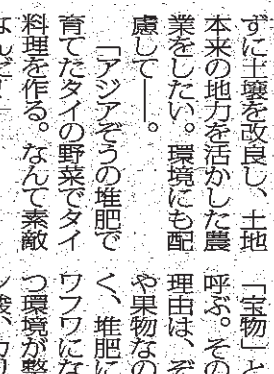 ずに土壌を改良し、土地
本来の地力を活かした農
業をしたい。環境にも配
慮して――。
「アジアぞうの堆肥で
育てたタイの野菜でタイ
料理を作る。なんて素敵
なんだ！
「宝物」と
呼ぶ。その
理由は、ぞ
や果物なの
く、堆肥に
ワフワにな
つ環境が整